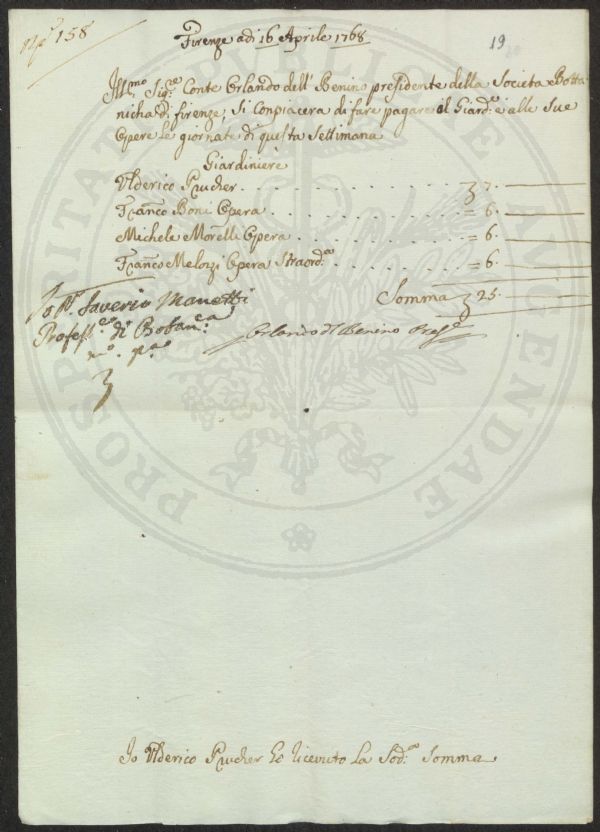 N.º 158
19
Firenze adi 16 Aprile 1768
Ill.mo Sig.re Conte Orlando dell' Benino presidente della Societa Botta
nicha di firenze, Si Conpiacera di fare pagare al Giard.e e alle Sue
Opere le giornate di questa Settimana
Giardiniere
Ulderico Prucher . . . . . . . . . . 7. —
Franco Boni Opera . . . . . . . . . = 6. —
Michele Morelli Opera . . . . . . . . = 6. —
Franco Melozzi Opera Straord.a . . = 6. —
Somma 25. —
Io D. Saverio Manetti
Profess.re di Botan.ca
m.o p.a
Orlando Del Benino Pres.e
Io Ulderico Prucher ho ricevuto La Sod.a Somma
PROSPERITATI PUBLICAE AUGENDAE